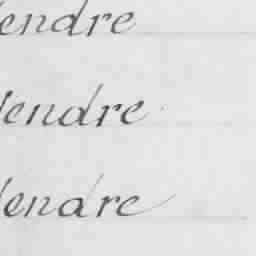 endre
endre
endre